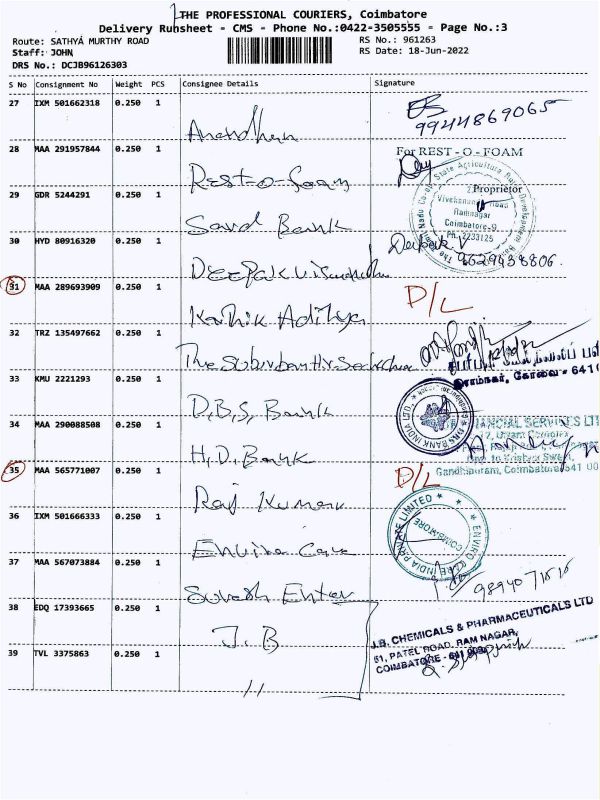 THE PROFESSIONAL COURIERS, Coimbatore
Delivery Runsheet - CMS - Phone No.:0422-3505555 - Page No.:3
Route: SATHYA MURTHY ROAD
RS No.: 961263
Staff: JOHN
RS Date: 18-Jun-2022
DRS No.: DCJB96126303
S No Consignment No Weight PCS Consignee Details Signature
27 IXM 501662318 0.250 1 Anandhan 9944869065
28 MAA 291957844 0.250 1 Rest-o-foam For REST - O - FOAM
Proprietor
29 GDR 5244291 0.250 1 Sard Bank
Vivekananda Road
Ramnagar
Coimbatore-9
Ph.:2233125
30 HYD 80916320 0.250 1 Deepak Deepak V 9629438806
31 MAA 289693909 0.250 1 Karthik Adithya D/L
32 TRZ 135497662 0.250 1 The Suburban Hr. Sec
33 KMU 2221293 0.250 1 D.B.S, Bank
BANK INDIA LTD
34 MAA 290088508 0.250 1 H.D. Bank
FINANCIAL SERVICES LTD
Gandhipuram, Coimbatore 641 00
35 MAA 565771007 0.250 1 Raj Kumar D/L
36 IXM 501666333 0.250 1 Enviro Care
ENVIRO CARE INDIA PRIVATE LIMITED
COIMBATORE
37 MAA 567073884 0.250 1 Suresh Enter 9894071515
38 EDQ 17393665 0.250 1 J.B
J.B. CHEMICALS & PHARMACEUTICALS LTD
51, PATEL ROAD, RAM NAGAR,
COIMBATORE - 641 009
39 TVL 3375863 0.250 1 "